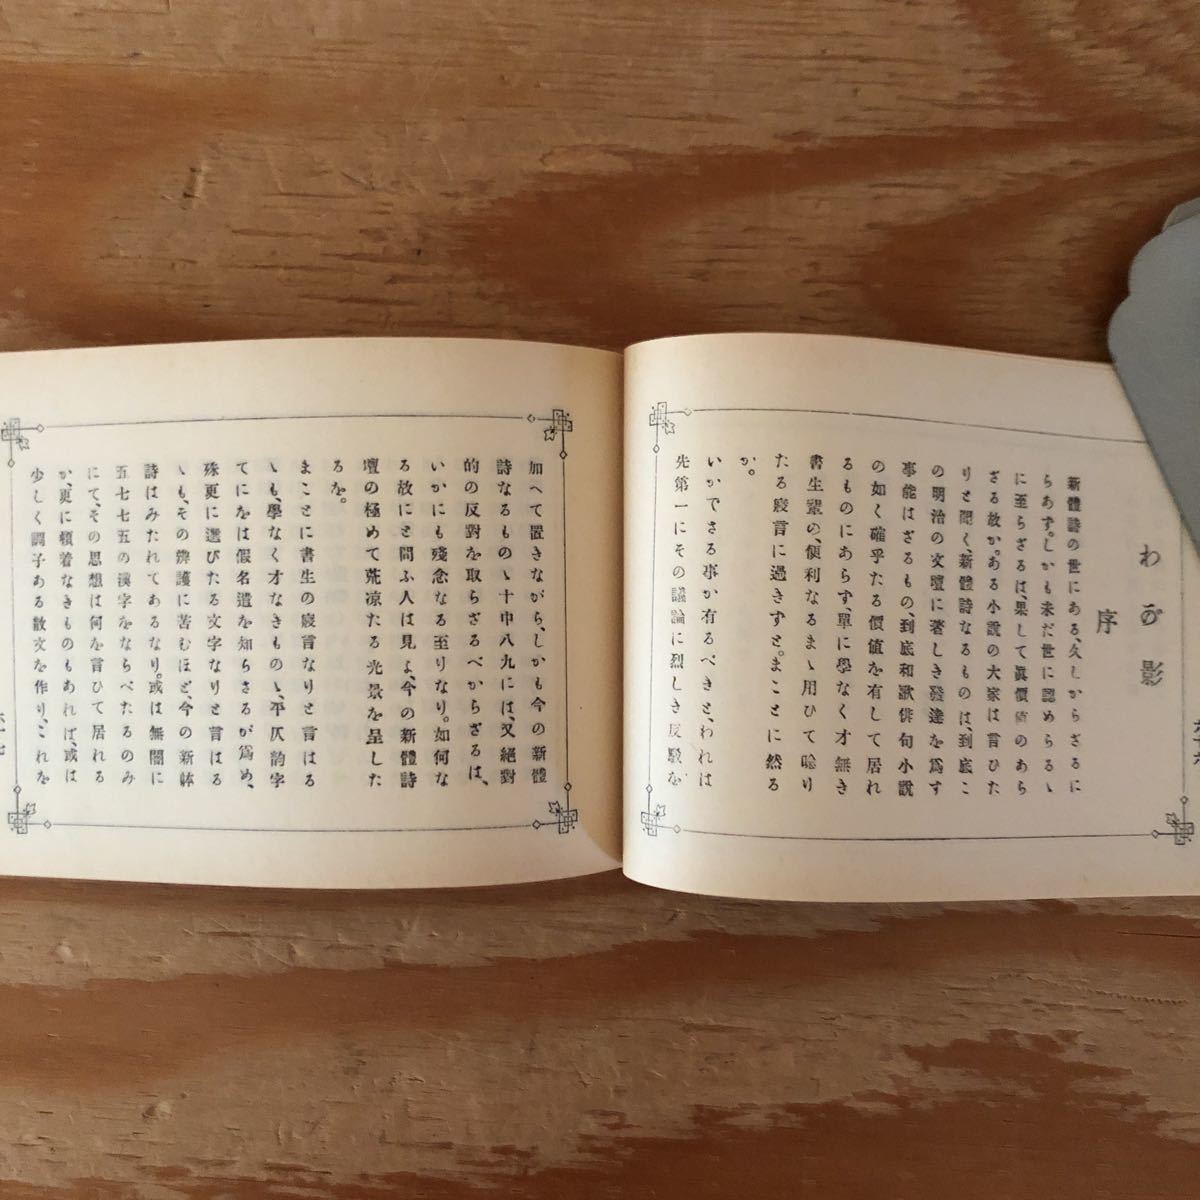 わが影
序
新體詩の世にある、久しからざるに
らあず。しかも未だ世に認めらるゝ
に至らざるは、果して眞價値のあら
ざる故か。ある小說の大家は言ひた
りと聞く、新體詩なるものは、到底こ
の明治の文壇に著しき發達を爲す
事能はざるもの、到底和歌俳句小說
の如く確乎たる價値を有して居れ
るものにあらず、單に學なく才無き
書生輩の、便利なるまゝ用ひて唸り
たる寢言に過きすと。まことに然る
か。
いかでさる事か有るべきと、われは
先第一にその議論に烈しき反駁を
加へて置きながら、しかも今の新體
詩なるものゝ十中八九には、又絕對
的の反對を取らざるべからざるは、
いかにも殘念なる至りなり。如何な
る故にと問ふ人は見よ、今の新體詩
壇の極めて荒凉たる光景を呈した
るを。
まことに書生の寢言なりと言はる
ゝも、學なく才なきものゝ、平仄韵字
てにをは假名遣を知らさるが爲め、
殊更に選びたる文字なりと言はる
ゝも、その辨護に苦むほど、今の新躰
詩はみたれてあるなり。或は無闇に
五七七五の漢字をならべたるのみ
にて、その思想は何を言ひて居れる
か、更に頓着なきものもあれば、或は
少しく調子ある散文を作り、これを